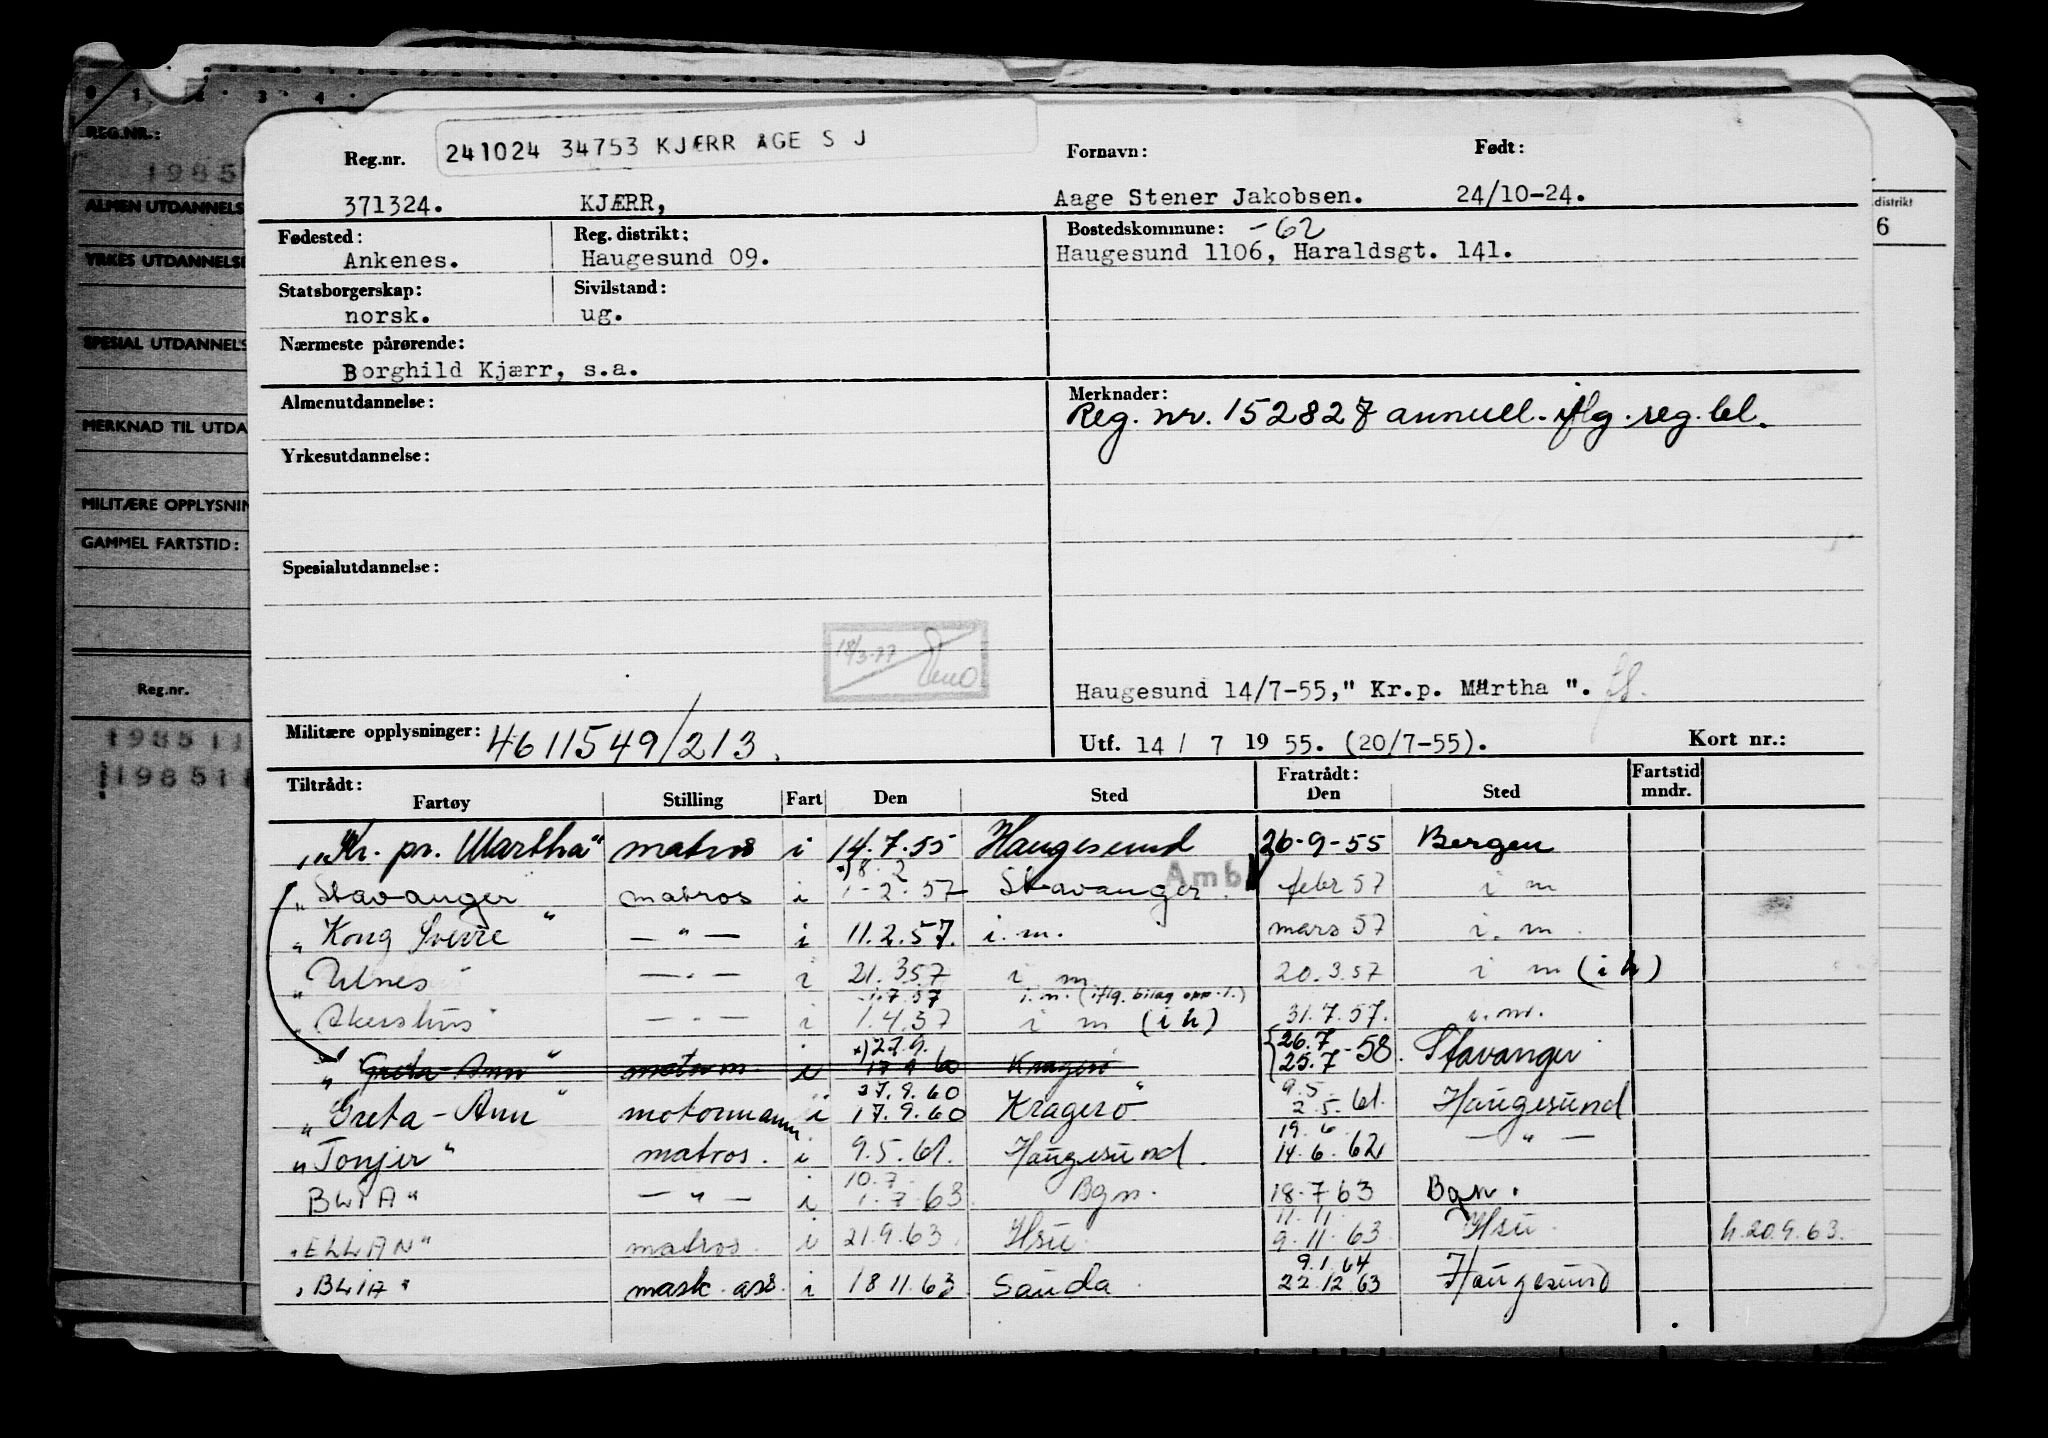 REG.NR.:
1985
ALMEN UTDANNELS
YRKES UTDANNELSE
SPESIAL UTDANNELS
MERKNAD TIL UTDA
MILITÆRE OPPLYSNIN
GAMMEL FARTSTID:
Reg.nr.
198511
198511
distrikt
6
241024 34753 KJÆRR AGE S J
Reg.nr. Fornavn: Født:
371324. KJÆRR, Aage Stener Jakobsen. 24/10-24.
Fødested: Reg. distrikt: Bostedskommune: -62
Ankenes. Haugesund 09. Haugesund 1106, Haraldsgt. 141.
Statsborgerskap: Sivilstand:
norsk. ug.
Nærmeste pårørende:
Borghild Kjærr, s.a.
Almenutdannelse: Merknader:
Reg. nr. 152827 annull. iflg. reg. bl.
Yrkesutdannelse:
Spesialutdannelse:
18/3-77
Haugesund 14/7-55," Kr.p. Märtha ".
Militære opplysninger: 4611549/213. Utf. 14 / 7 19 55. (20/7-55). Kort nr.:
Tiltrådt: Fratrådt: Fartstid
Fartøy Stilling Fart Den Sted Den Sted mndr.
"Kr. pr. Märtha" matros i 14.7.55 Haugesund 26-9-55 Bergen
*) 8.2 Amb
"Stavanger matros i 1-2.57 Stavanger. febr 57 i m
"Kong Sverre" — " — i 11.2.57. i.m. mars 57 i.m.
"Utnes" — " — i 21.3.57 i m 20.3.57 i m (i h)
1.7.57 i.m. (iflg. bilag opp.l.)
"Akershus" — " — i 1.4.57 i m (i h) 31.7.57. i.m.
*) 27.9. 26.7
"Greta-Ann" i 17 9 60 Kragerö 25.7-58. Stavanger
27.9.60 9.5.
"Greta-Ann" motormann i 17.9.60 Kragerö 2.5.61. Haugesund
19.6
"Tonjer" matros. i 9.5.61. Haugesund. 14.6.62 — " —
10.7
BLIA" — " — i 1.7.63 Bgn. 18.7 63 Bgn.
11.11
"ELLAN" matros. i 21.9.63. Hsu. 9.11.63 Hsu h.20.9.63.
9.1.64
"BLIA" mask. ass. i 18 11.63 Sauda 22.12 63 Haugesund